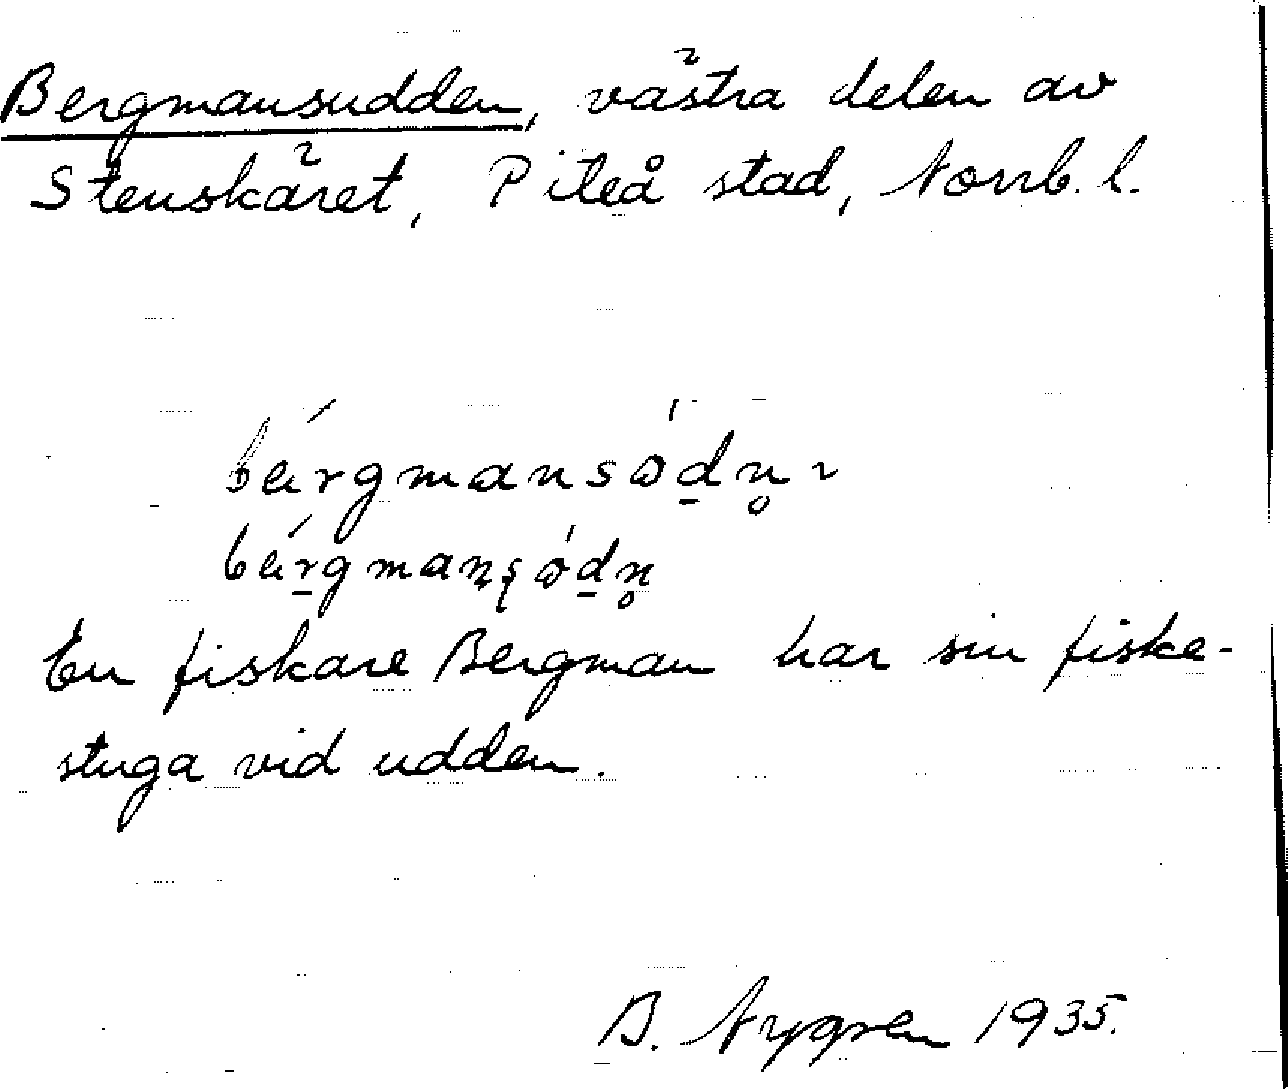 Bergmansudden, västra delen av
Stenskäret, Piteå stad, Norrb. l.
En fiskare Bergman har sin fiske-
stuga vid udden.
B. Nygren 1935.